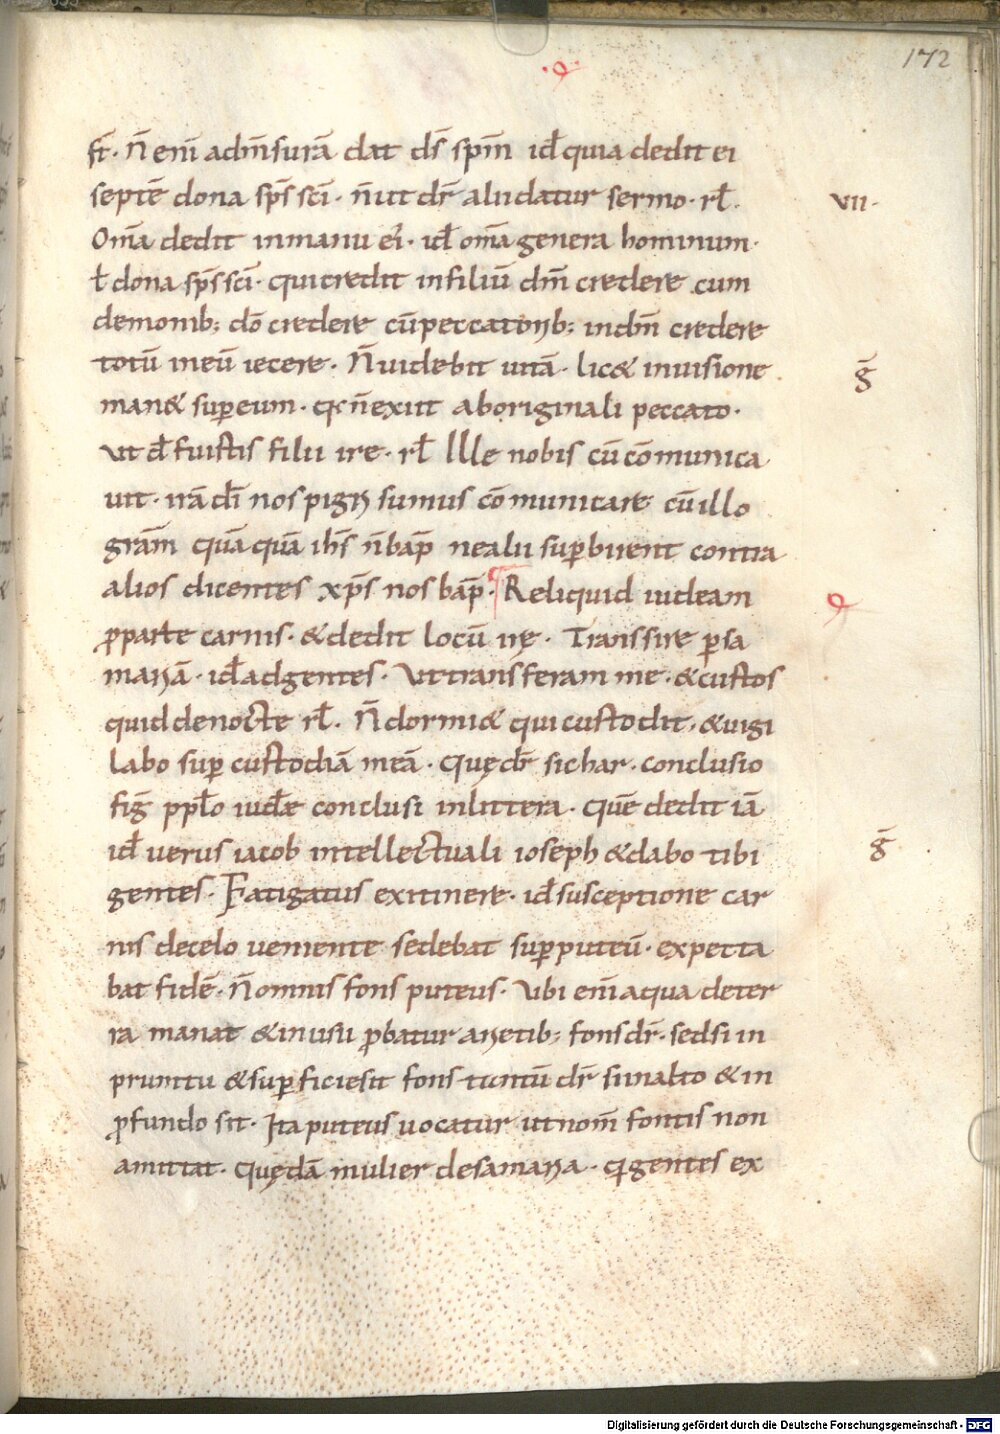 172
ſt̄. N̄ enī adm̄surā dat d̄s sp̄m id̄ quia dedit ei
septē dona sp̄s sc̄i. n̄ ut dr̄ alii datur sermo. rl̄.
VII.
Om̄a dedit in manu ei'. id̄ om̄a genera hominum.
ł dona sp̄s sc̄i. qui credit in filiū dm̄ credere cum
demonib; dō credere cū peccatorib; in dm̄ credere
totū meū iecere. N̄ uidebit uitā. lic& in uisione
ḡ
man& sup̱ eum. q̄ n̄ exiit ab originali peccato.
Vt d̄ fuistis filii ire. rl̄ Ille nobis cū cōmunica
uit. irā dī nos pigri sumus cōmunicare cū illo
grām quā quā ih̄s n̄ bap̄ ne alii sup̱birent contra
alios dicentes xp̄s nos bap̄. Reliquid iudeam
p̱ parte carnis. & dedit locū irę. Transsire p̱ sa
mariā. id̄ ad gentes. Vt transferam me. & custos
quid de nocte rl̄. N̄ dormi& qui custodit. & uigi
labo sup̱ custodiā meā. Quę dr̄ sichar. conclusio
fiḡ ppl̄o iudæ conclusi in littera. Quē dedit iā
id̄ uerus iacob intellectuali ioseph & dabo tibi
ḡ
gentes. Fatigatus ex itinere. id̄ susceptione car
nis de celo ueniente sedebat sup̱ puteū. expecta
bat fidē. N̄ omnis fons puteus. Vbi enī aqua de ter
ra manat & in usu p̱batur arietib; fons dr̄. sed si in
pruntu & sup̱ficie sit fons tantū dr̄ si in alto & in
p̱fundo sit. Ita puteus uocatur ut nom̄ fontis non
amittat. Quędā mulier de samaria. q̄ gentes ex
Digitalisierung gefördert durch die Deutsche Forschungsgemeinschaft - DFG